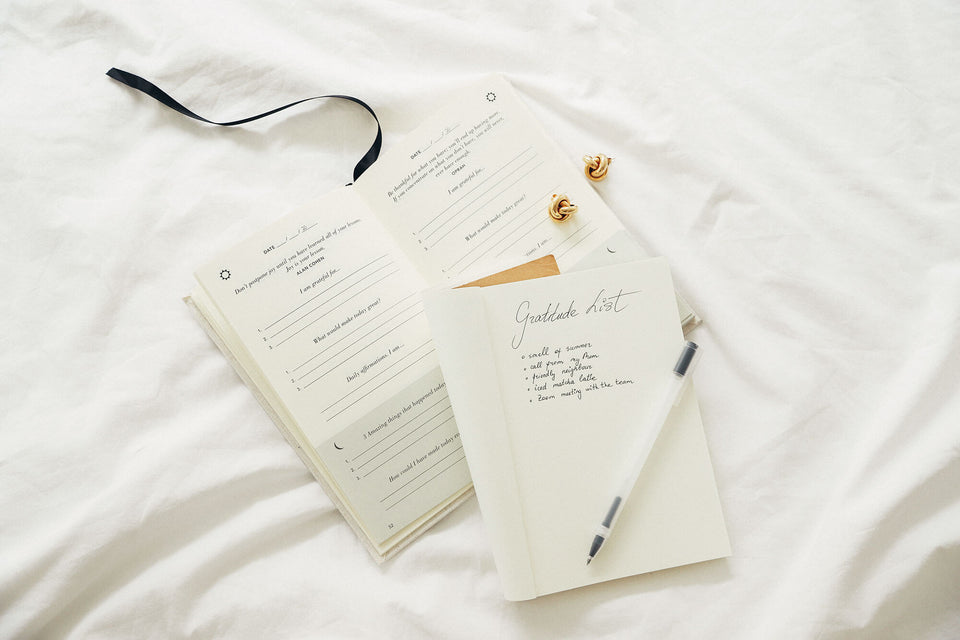 DATE __/__/20__
Don't postpone joy until you have learned all of your lessons.
Joy is your lesson.
ALAN COHEN
I am grateful for...
1.
2.
3.
What would make today great?
1.
2.
3.
Daily affirmations. I am...
3 Amazing things that happened today
1.
2.
3.
How could I have made today
52
DATE __/__/20__
Be thankful for what you have; you'll end up having more.
If you concentrate on what you don't have, you will never,
ever have enough.
OPRAH
I am grateful for...
1.
2.
3.
What would make today great?
1.
2.
3.
I am...
Gratitude List
• smell of summer
• call from my Mum
• friendly neighbour
• iced matcha latte
• Zoom meeting with the team